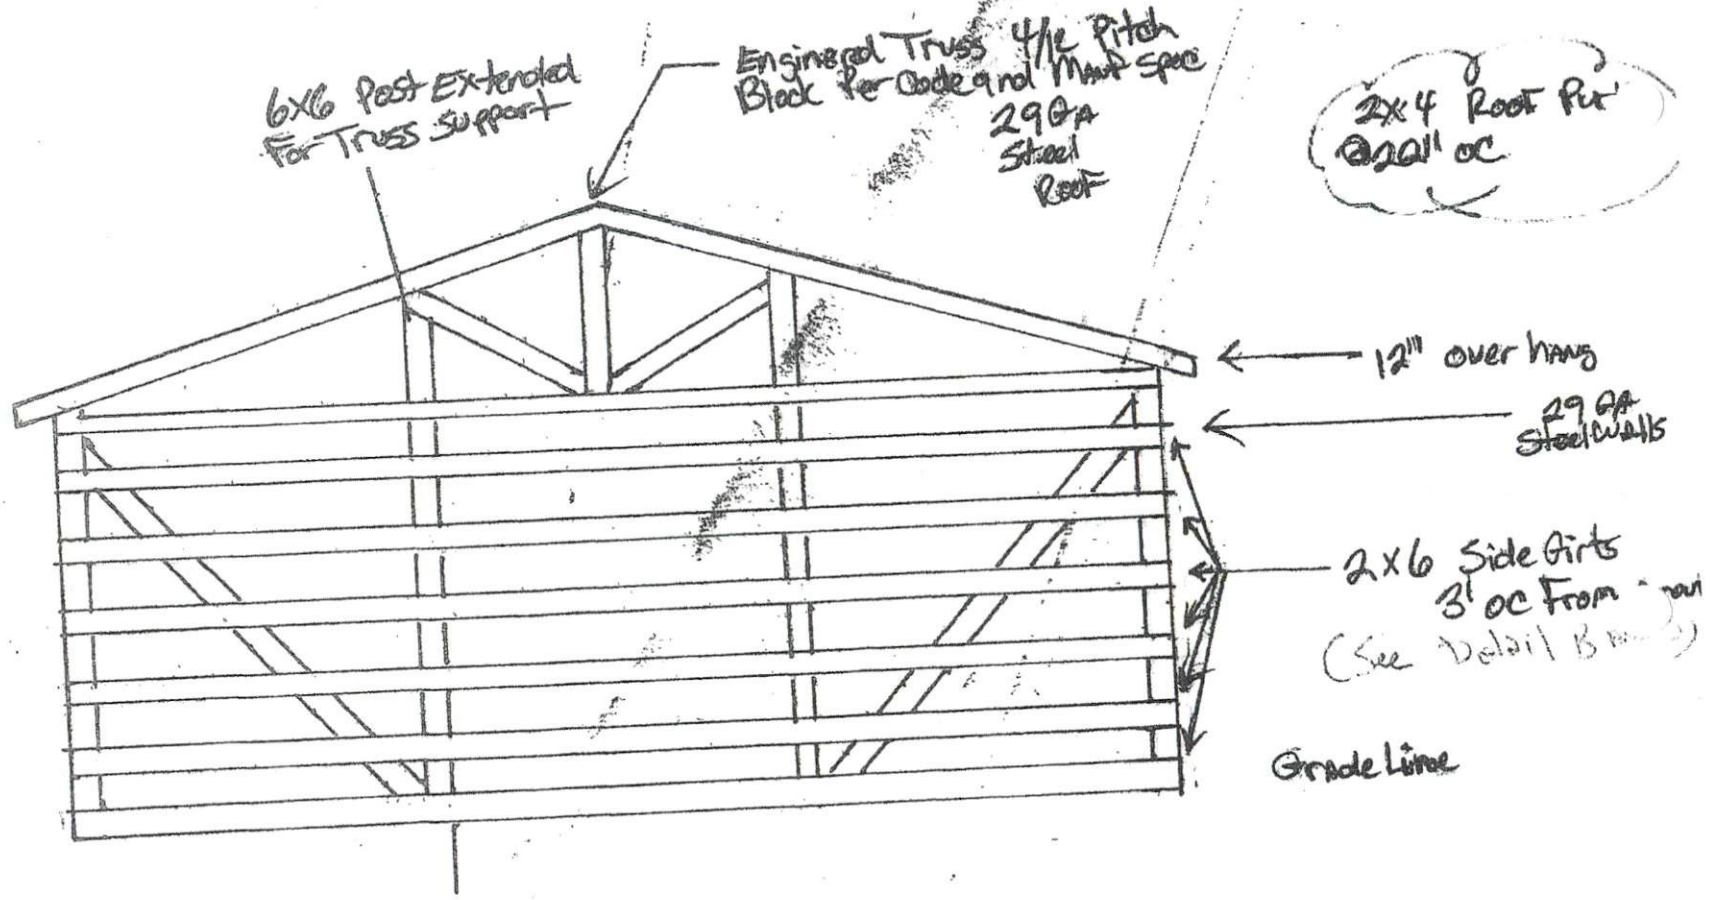 6x6 Post Extended
For Truss Support
Enginered Truss 4/12 Pitch
Block Per Code and Manf Spec
29 GA
Steel
Roof
2x4 Roof
OC
12" over hang
29 GA
Steel Walls
2x6 Side Girts
3' OC From
(See Detail B
Grade Line